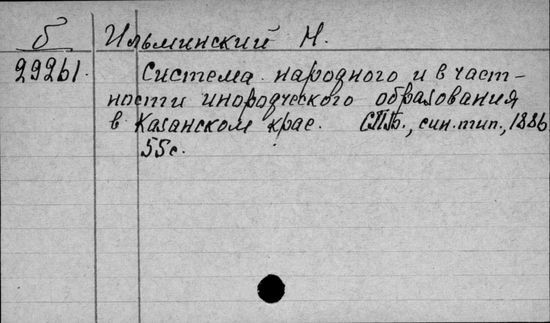 б Ильминский Н.
29261. Система народного и в част-
ности инородческого образования
в Казанском крае. СПБ., син.тип., 1886
55с.